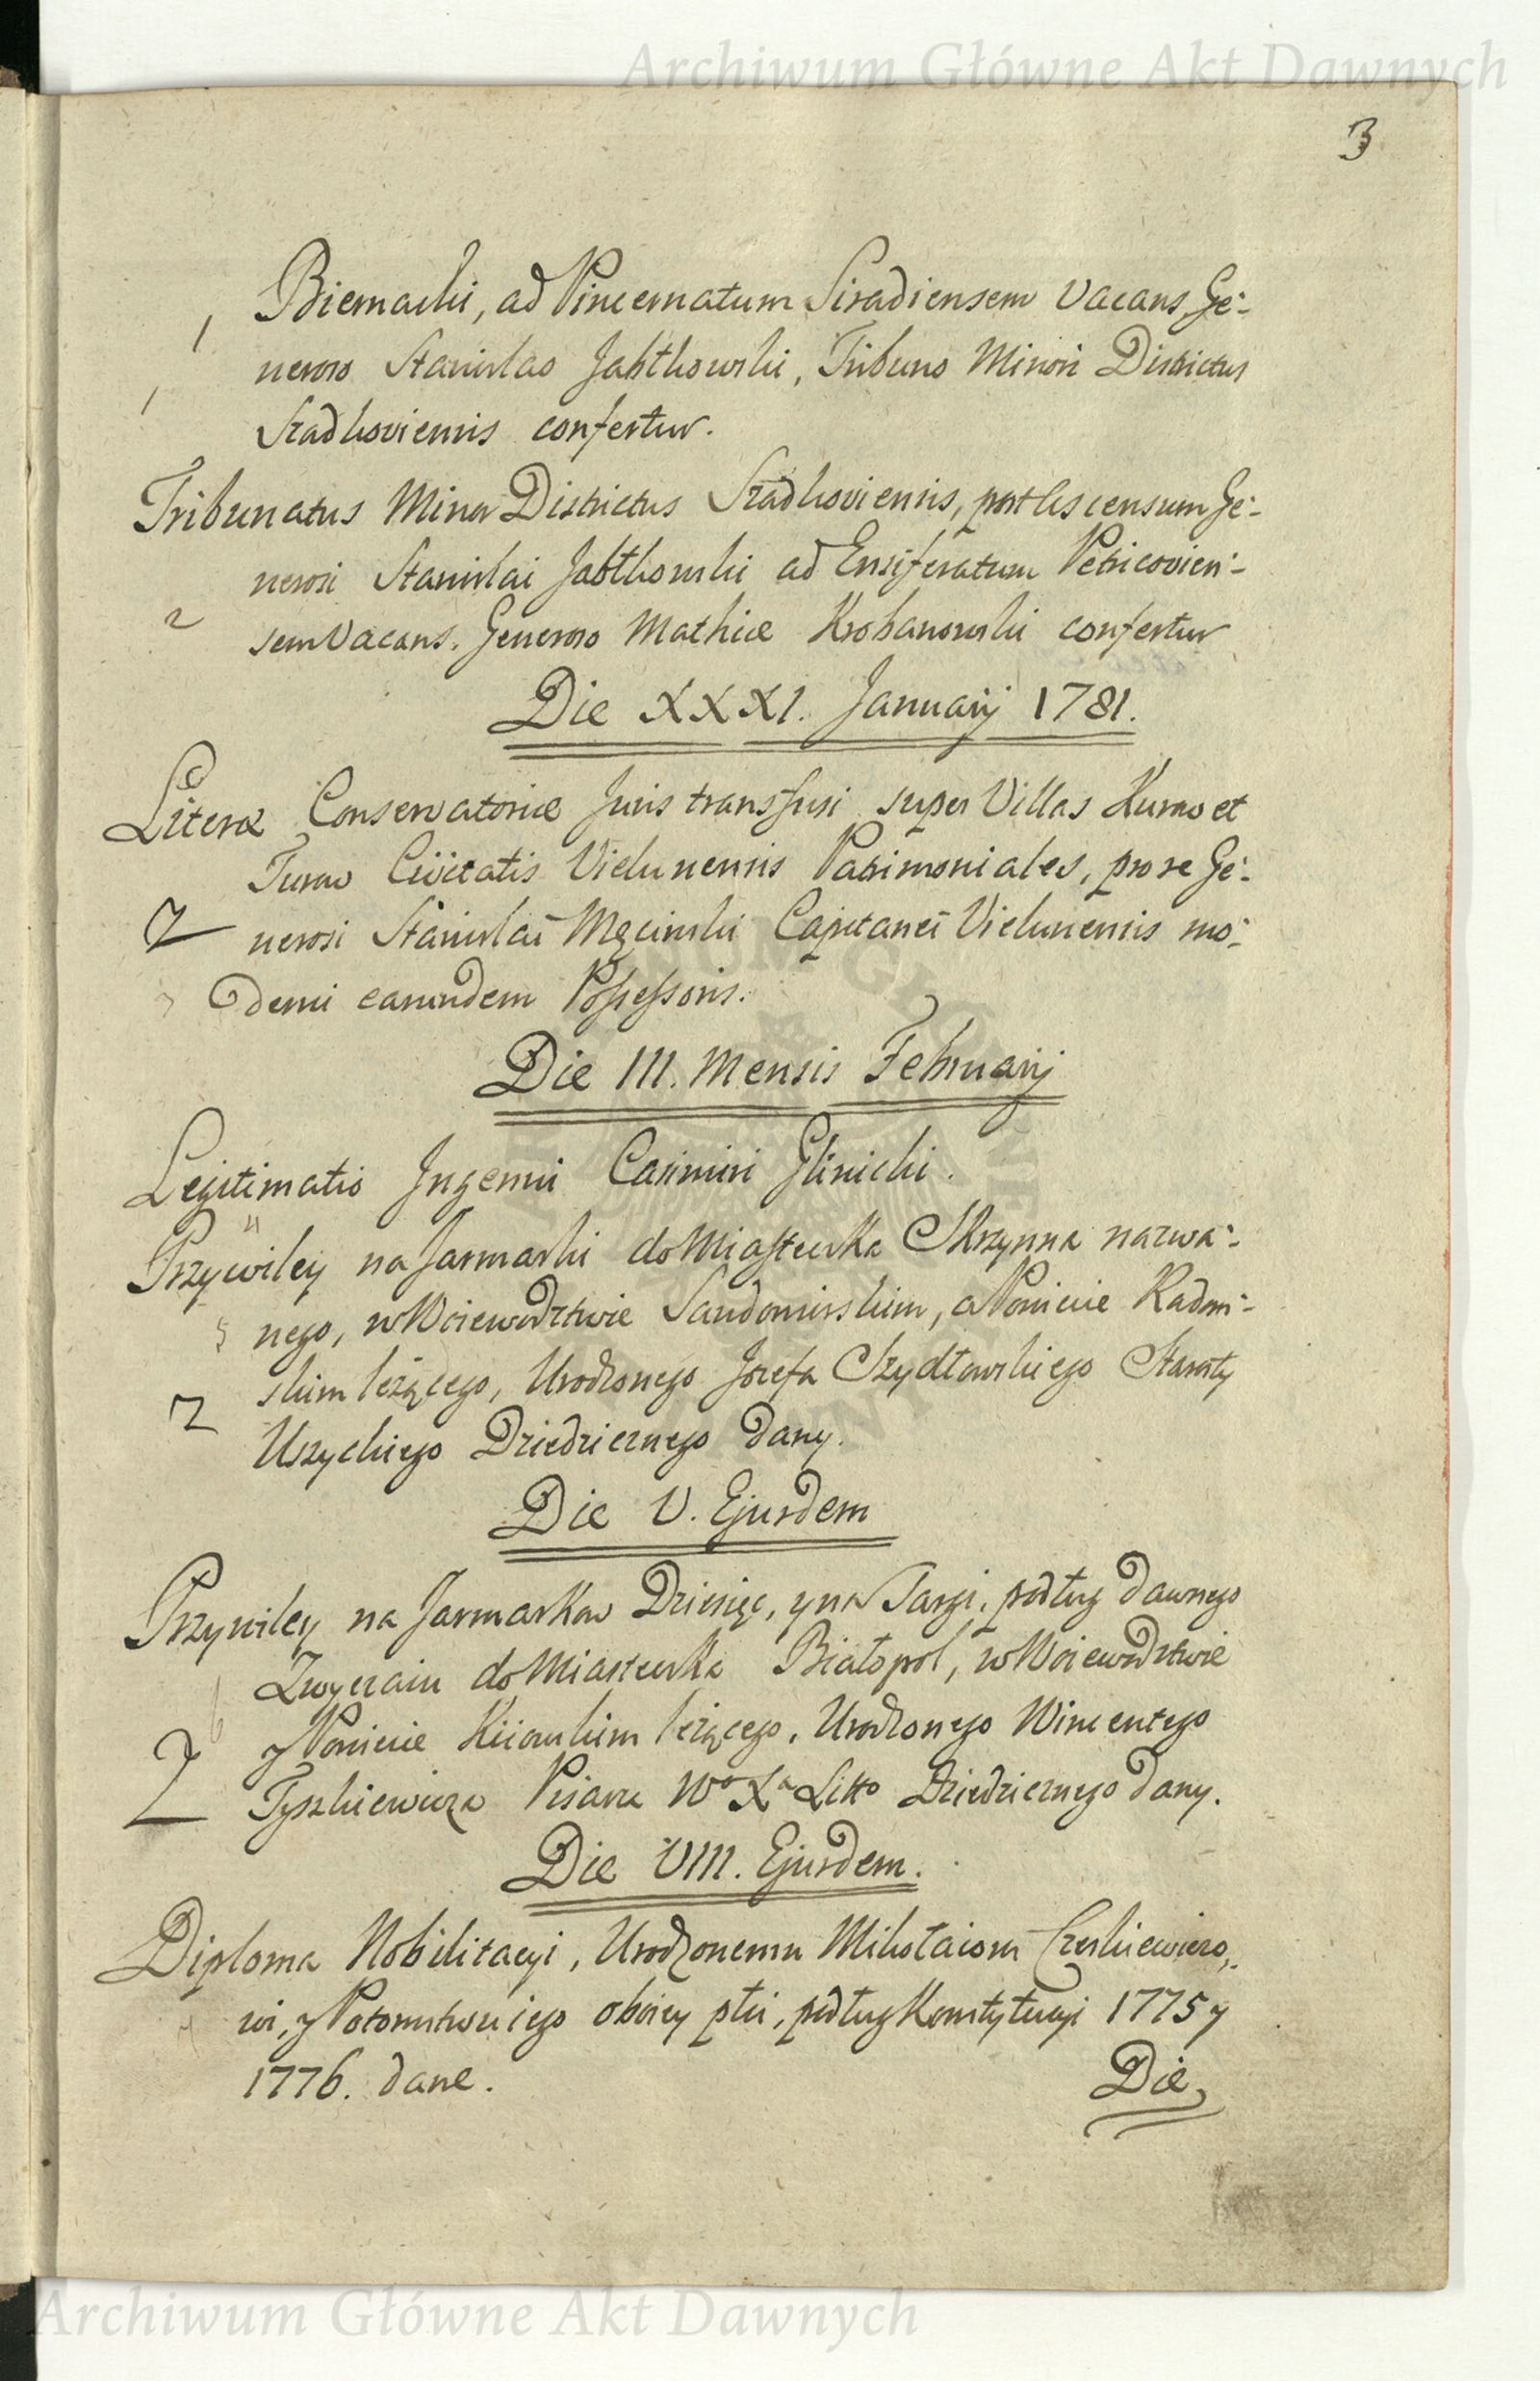 Archiwum Główne Akt Dawnych
3
Biernacki, ad Pincernatum Siradiensem vacans, Ge-
neroso Stanislao Jabłkowski, Tribuno Minori Districtus
Szadkoviensis confertur.
Tribunatus Minor Districtus Szadkoviensis, post Ascensum Ge-
nerosi Stanislai Jabłkowski ad Ensiferatum Petricovien-
sem Vacans. Generoso Mathiæ Kobanowski confertur
Die XXXI. Januarij 1781.
Literæ Conservatoriæ Juris transfusi super Villas Kurow et
Turow Civitatis Vielunensis Patrimoniales, pro re Ge-
nerosi Stanislai Męcinski Capitanei Vielunensis mo-
derni earundem Possessoris.
Die III. Mensis Februarij
Legitimatio Ingenui Casimiri Glinicki.
Przywiley na Jarmarki do Miasteczka Skrzynna nazwa-
nego, w Woiewodztwie Sandomirskim, a Powiecie Radom-
skim leżącego, Urodzonego Jozefa Szydłowskiego Starosty
Uszyckiego Dziedzicznego dany.
Die V. Ejusdem
Przywiley na Jarmarkow Dziesięc, y na Targi, podług dawnego
Zwyczaiu do Miasteczka Białopol, w Woiewodztwie
y Powiecie Kiiowskim leżącego, Urodzonego Wincentego
Tyszkiewicza Pisarza Wo Xa Litto Dziedzicznego dany.
Die VIII. Ejusdem.
Diploma Nobilitacyi, Urodzonemu Mikołaiowi Czeskiewiczo-
wi, y Potomstwu iego oboiey płci, podług Konstytucyi 1775 y
1776. dane.
Die
Archiwum Główne Akt Dawnych